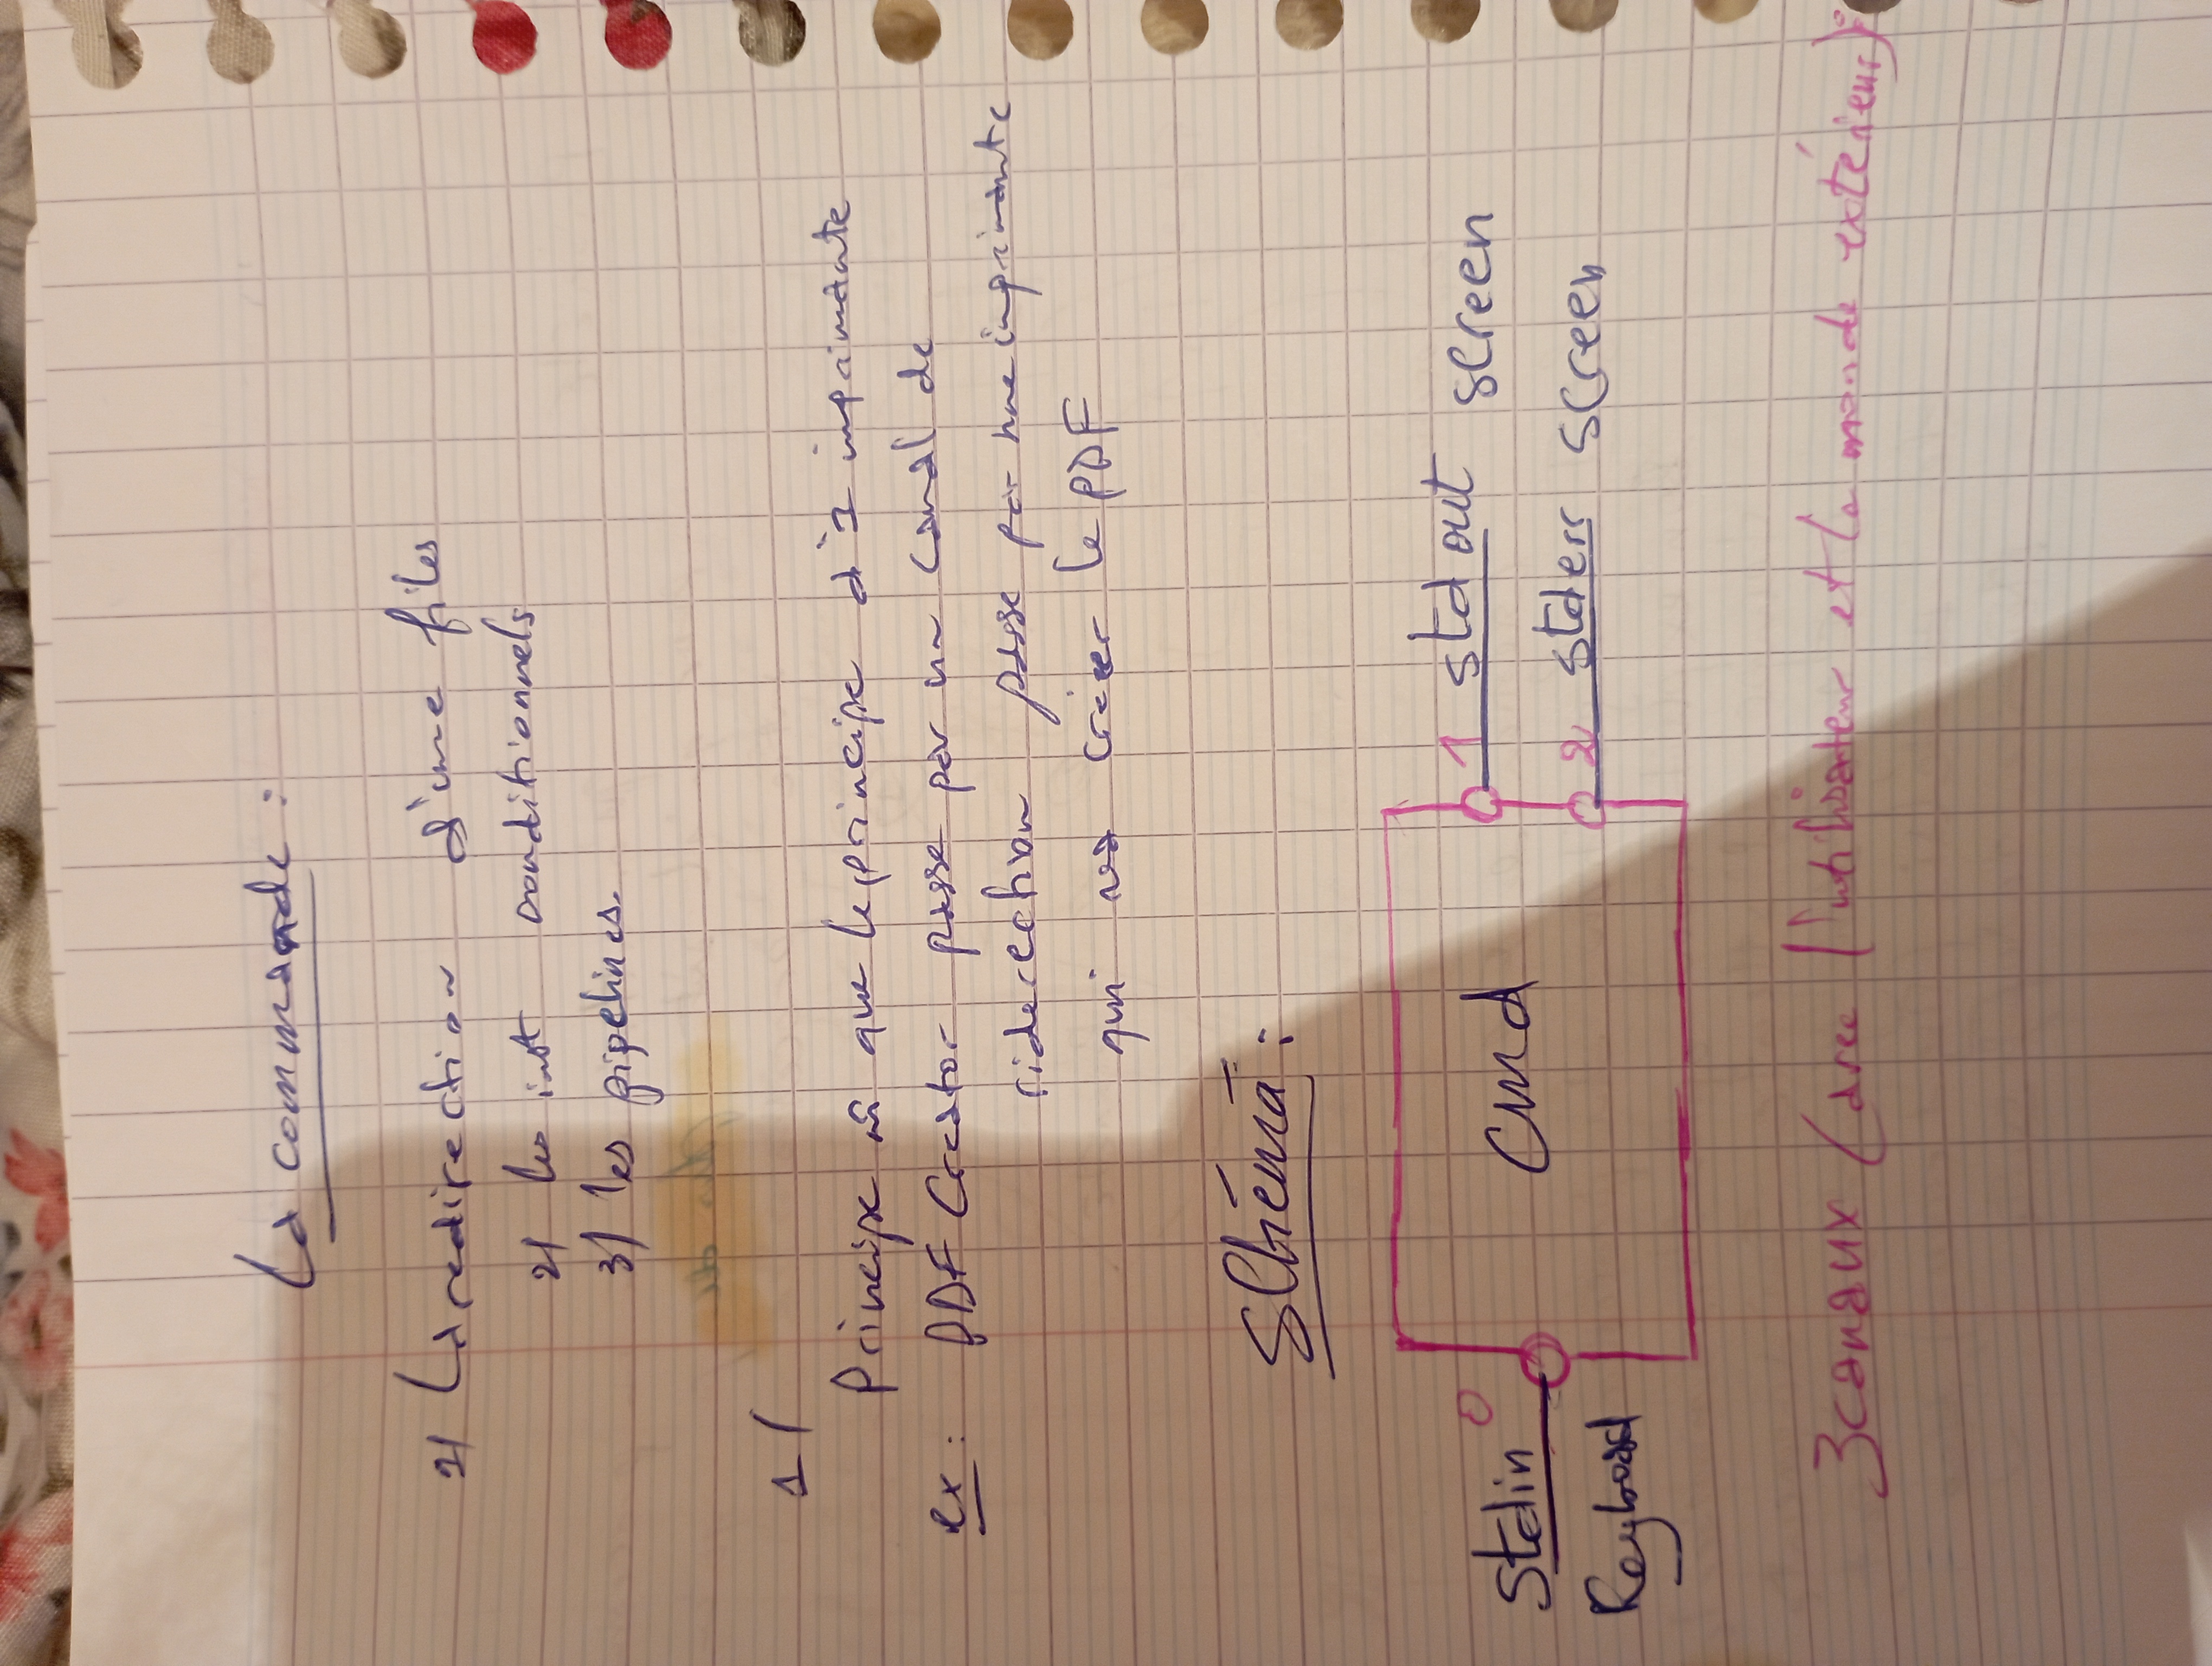 La commande :
1) La redirection d'une files
2) les inst conditionnels
3) les pipelines.
1)
Principe m̂ que le principe d'1 imprimante
ex : PDF Creator passe par un canal de
riderection passe par une imprimante
qui va créer le PDF
Schéma :
0
Stdin
Keyboard
Cmd
1 stdout screen
2 stderr screen
3 canaux (avec l'utilisateur et la monde extérieur) :